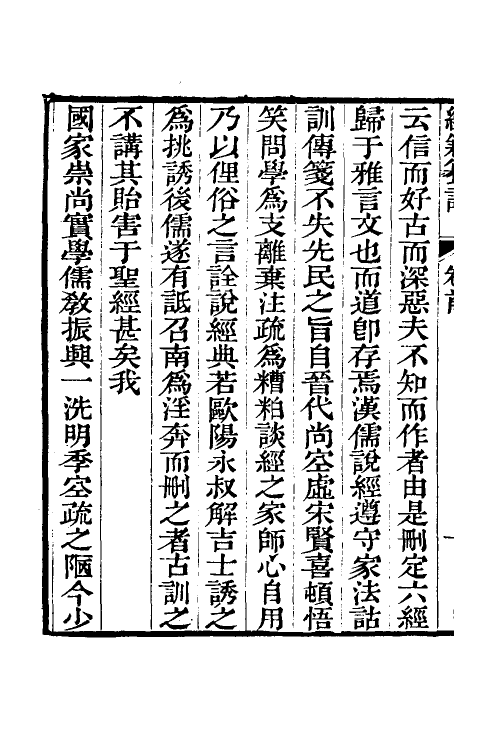 云信而好古而深惡夫不知而作者由是刪定六經
歸于雅言文也而道卽存焉漢儒說經遵守家法詁
訓傳箋不失先民之旨自晉代尚空虛宋賢喜頓悟
笑問學爲支離棄注疏爲糟粕談經之家師心自用
乃以俚俗之言詮說經典若歐陽永叔解吉士誘之
爲挑誘後儒遂有詆召南爲淫奔而刪之者古訓之
不講其貽害于聖經甚矣我
國家崇尚實學儒教振興一洗明季空疏之陋今少